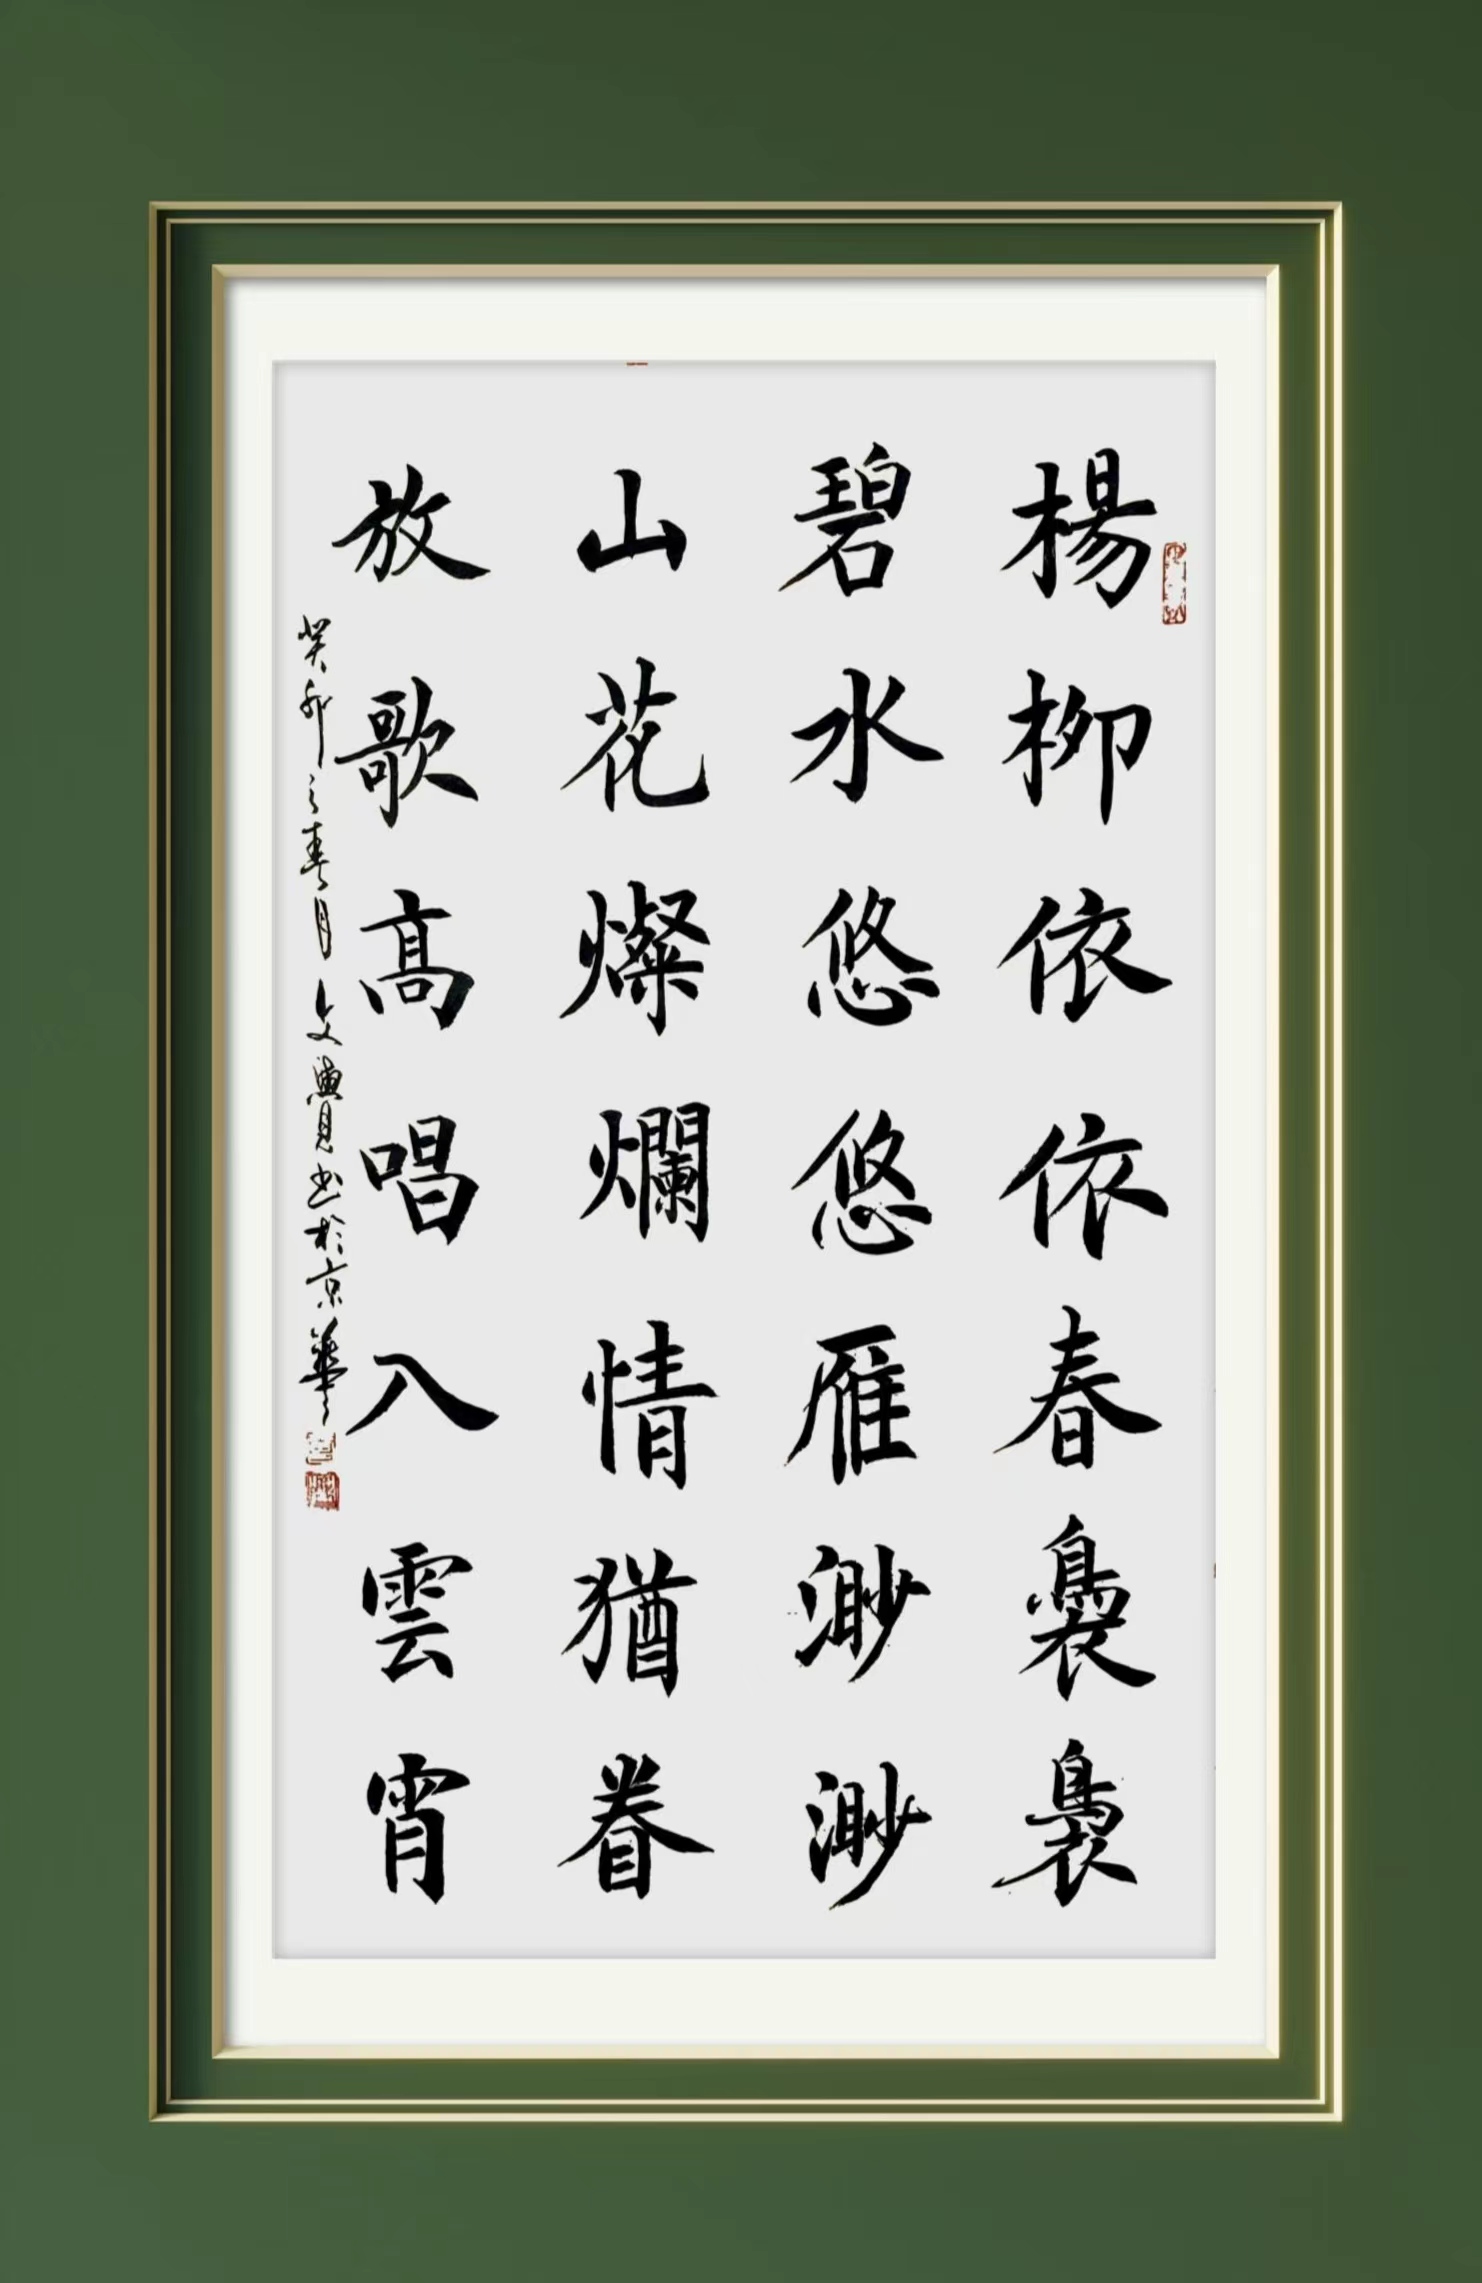 楊柳依依春裊裊
碧水悠悠雁渺渺
山花燦爛情猶眷
放歌高唱入雲霄
癸卯之春月文興見书於京華